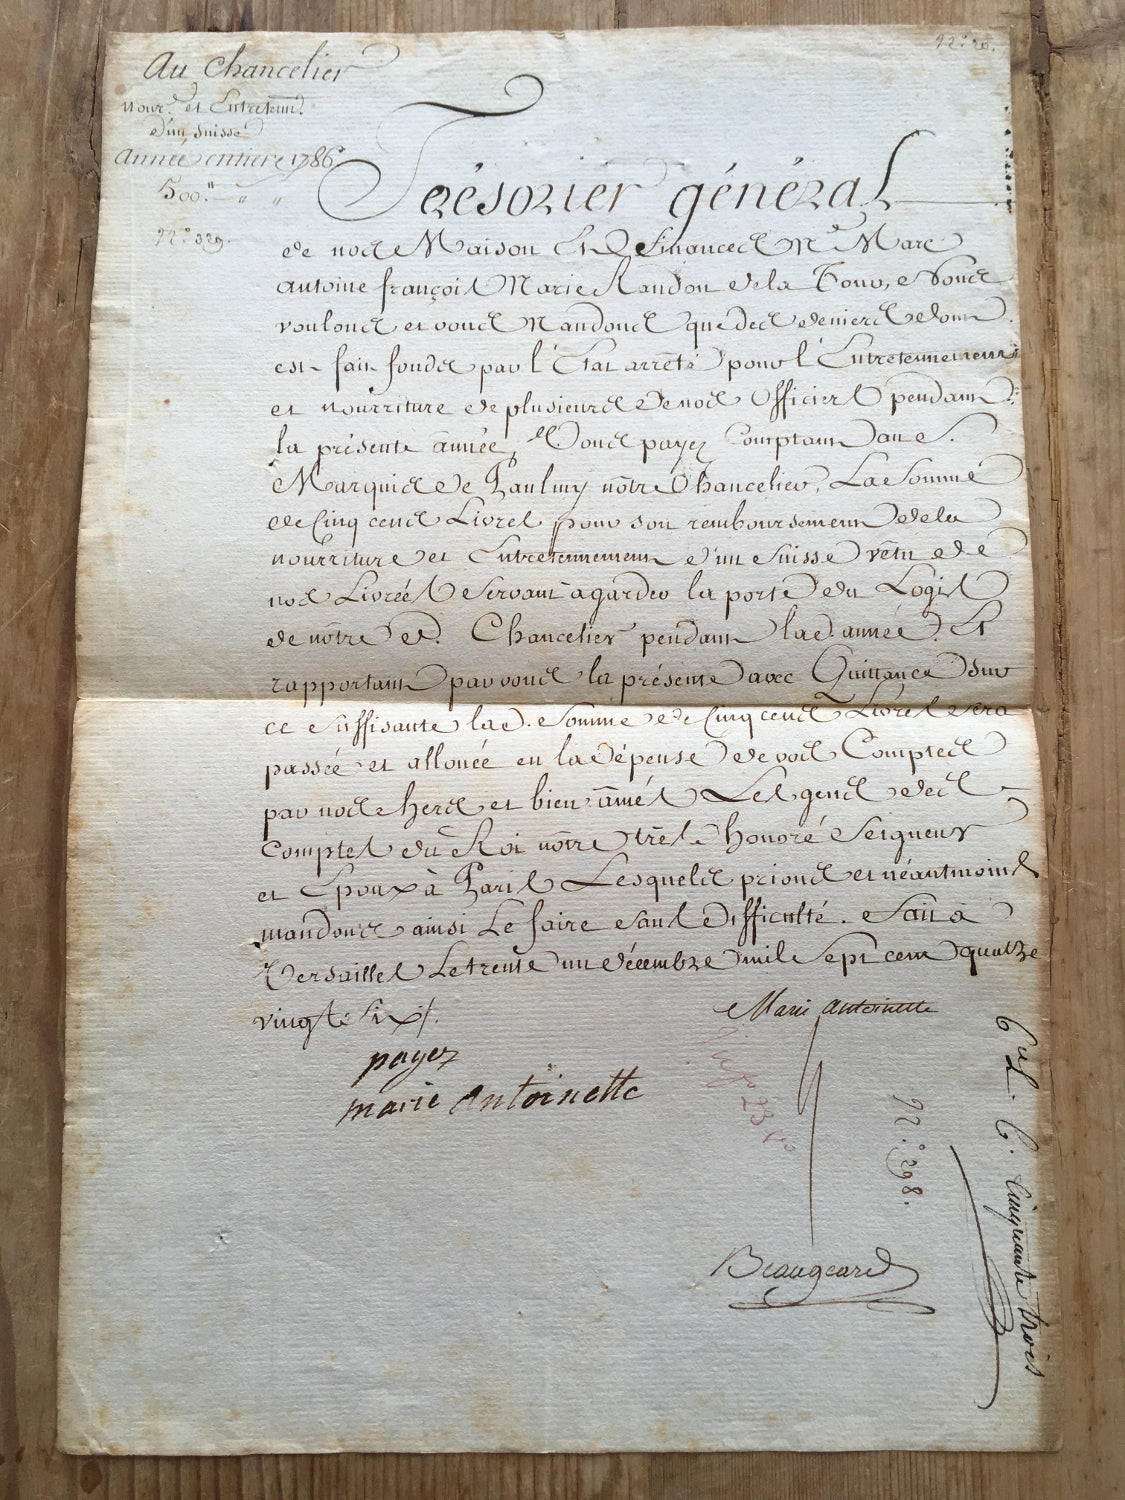 N.º 20.
Au Chancelier
nour.e et Entretenm.t
d'un Suisse
Année entiere 1786.
500.ᵗᵗ „ „
N.º 329.
Trésorier général
de nos Maison Et Finances Mᵉ. Marc
Antoine françois Marie Randon de la Tour, Nous
voulons et vous Mandons que des deniers dont
est fait fonds par l'Etat arrêté pour l'Entretennement
et nourriture de plusieurs de nos Officiers pendant
la présente année, Vous payez Comptant au S.
Marquis de Paulmy nôtre Chancelier, La Somme
de Cinq cens Livres, pour son remboursement de la
nourriture et Entretennement d'un Suisse vêtu de
nos Livrées Servant à garder la porte du Logis
de nôtre d. Chancelier pendant lad. année. Et
rapportant par vous la présente avec Quittance sur
ce suffisante lad. Somme de Cinq cens Livres sera
passée et allouée en la dépense de vos Comptes
par nos chers et bien âmés Les gens des
Comptes du Roi nôtre très honoré Seigneur
et Epoux à Paris Lesquels prions et néantmoins
mandons ainsi Le faire Sans difficulté. Fait à
Versailles Le trente un décembre mil Sept cent quatre
vingt Six./.
Marie Antoinette
payez
marie Antoinette
N.º 298.
Beaugeard
Cinquante trois